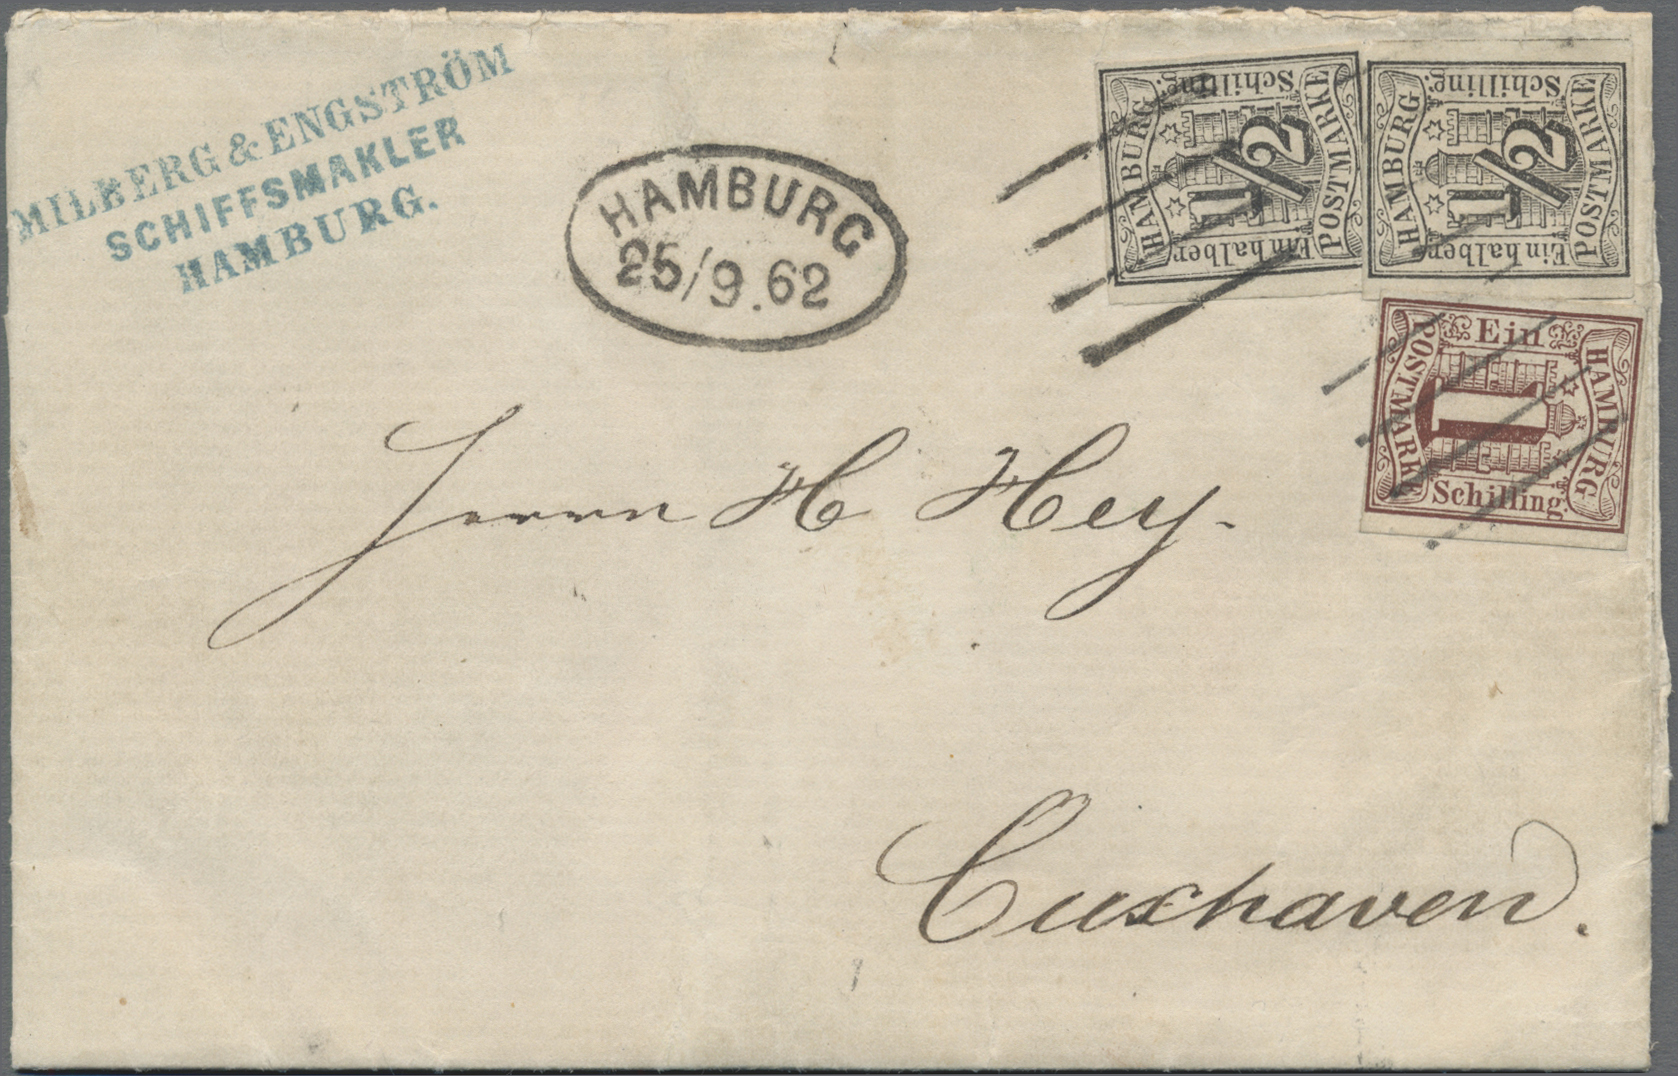 MILBERG & ENGSTRÖM
SCHIFFSMAKLER
HAMBURG.
HAMBURG
25/9.62
Schilling.
HAMBURG
1/2
POSTMARKE
Ein halber
Schilling.
HAMBURG
1/2
POSTMARKE
Ein halber
Ein
POSTMARKE
1
HAMBURG
Schilling.
Herrn H Hey.
Cuxhaven.